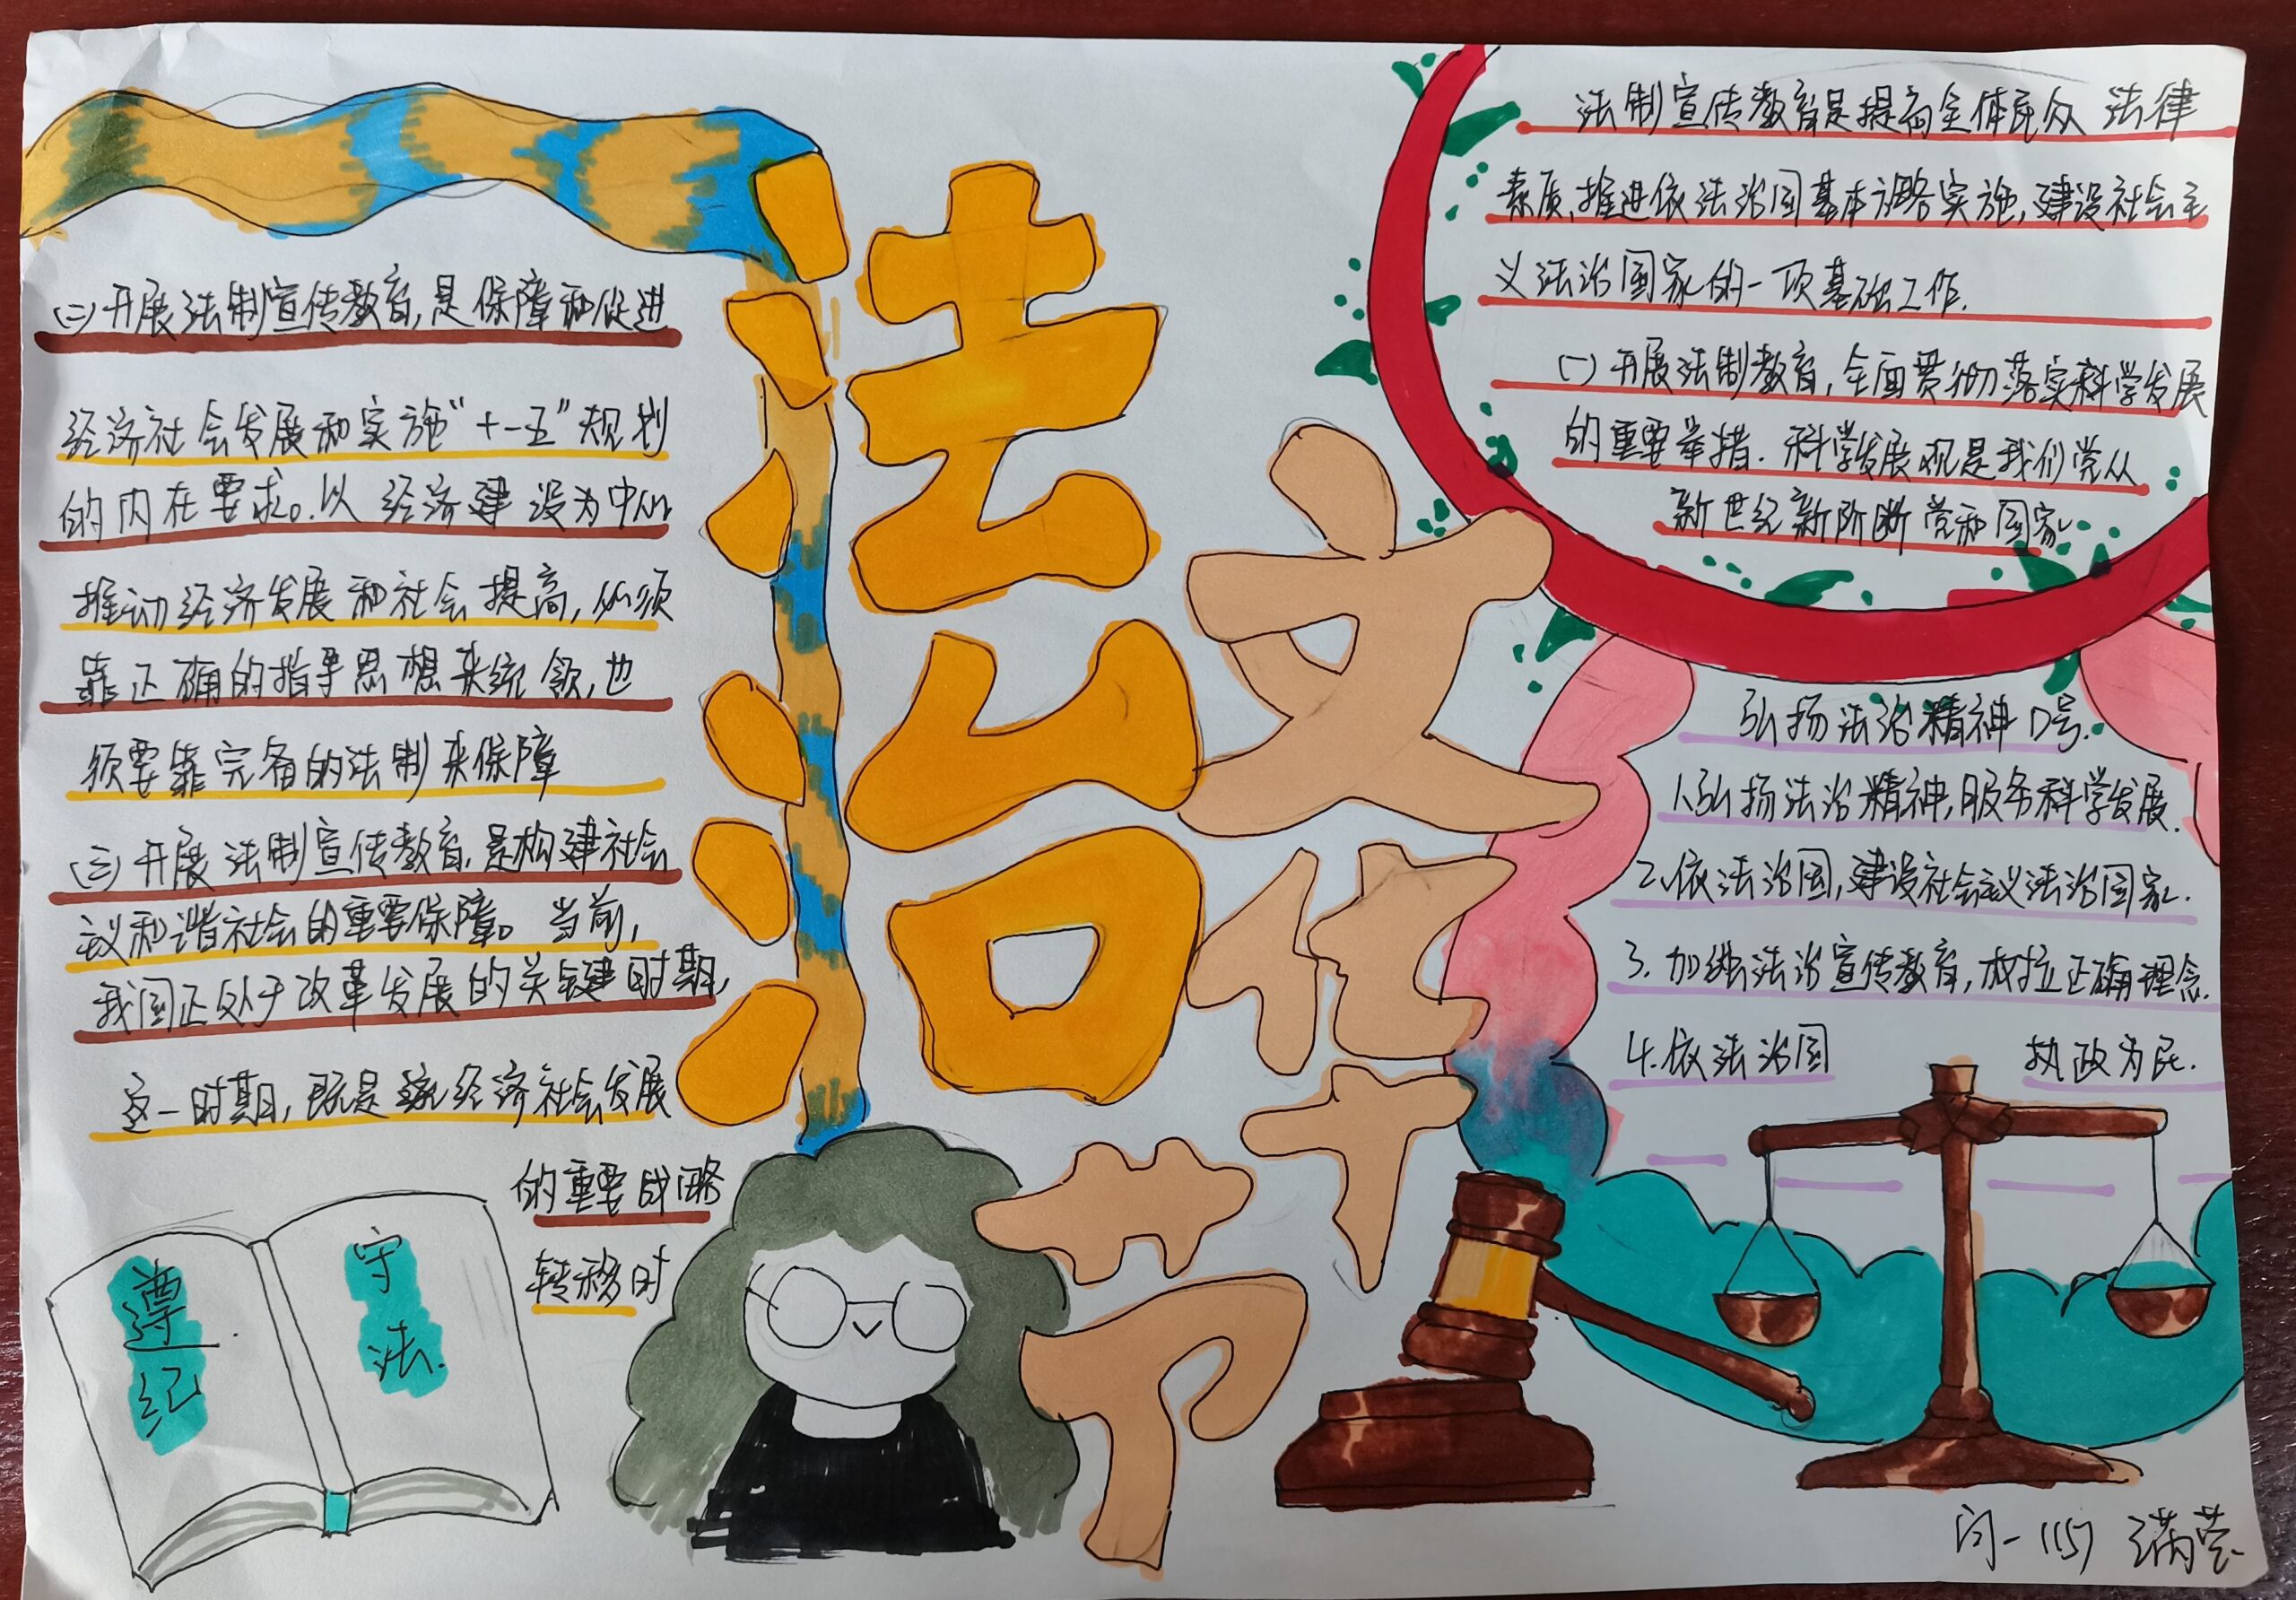 法治
文化节
法制宣传教育是提高全体民众法律
素质,推进依法治国基本方略实施,建设社会主
义法治国家的一项基础工作.
(一)开展法制教育,全面贯彻落实科学发展
的重要举措.科学发展观是我们党从
新世纪新阶断党和国家
(二)开展法制宣传教育,是保障和促进
经济社会发展和实施“十一五”规划
的内在要求。.以经济建设为中心
推动经济发展和社会提高,必须
靠正确的指导思想来统领,也
须要靠完备的法制来保障
(三)开展法制宣传教育,是构建社会
主义和谐社会的重要保障。当前,
我国正处于改革发展的关键时期,
这一时期,既是 经济社会发展
的重要战略
转移时
弘扬法治精神口号.
1.弘扬法治精神,服务科学发展.
2.依法治国,建设社会主义法治国家.
3.加强法治宣传教育,树立正确理念.
4.依法治国 执政为民.
遵纪
守法.